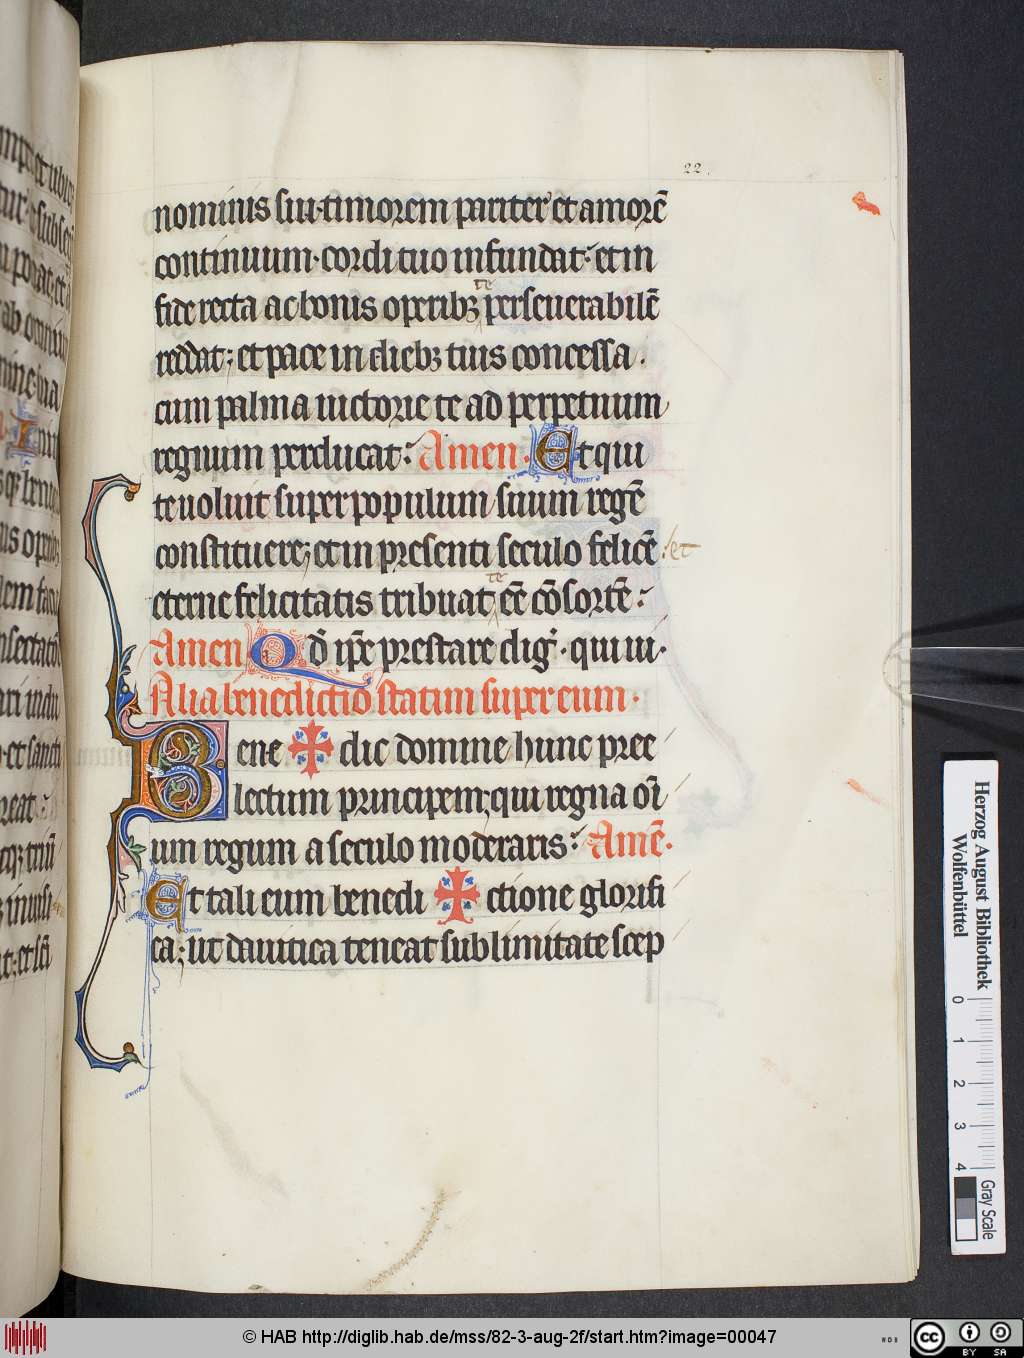 22.
nominis sui·timorem pariter et amorē
continuum·cordi tuo infundat: et in
te
fide recta ac bonis operibꝫ perseuerabilē
reddat; et pace in diebꝫ tuis concessa.
cum palma uictorie te ad perpetuum
regnum perducat: Amen. Et qui
te uoluit super populum suum regē
constituere; et in presenti seculo felicē: et
te
eterne felicitatis tribuat eē cōsortē:
Amen Qd̄ ip̄e prestare dig̾·qui ui·
Alia benedictio statim super eum·
Bene ✠ dic domine hunc pree
lectum principem; qui regna oī
um regum a seculo moderaris: Amē.
Et tali eum benedi ✠ ctione glorifi
ca; ut dauitica teneat sublimitate scep
Herzog August Bibliothek
Wolfenbüttel
0 1 2 3 4
Gray Scale
© HAB http://diglib.hab.de/mss/82-3-aug-2f/start.htm?image=00047
WDB
cc BY SA